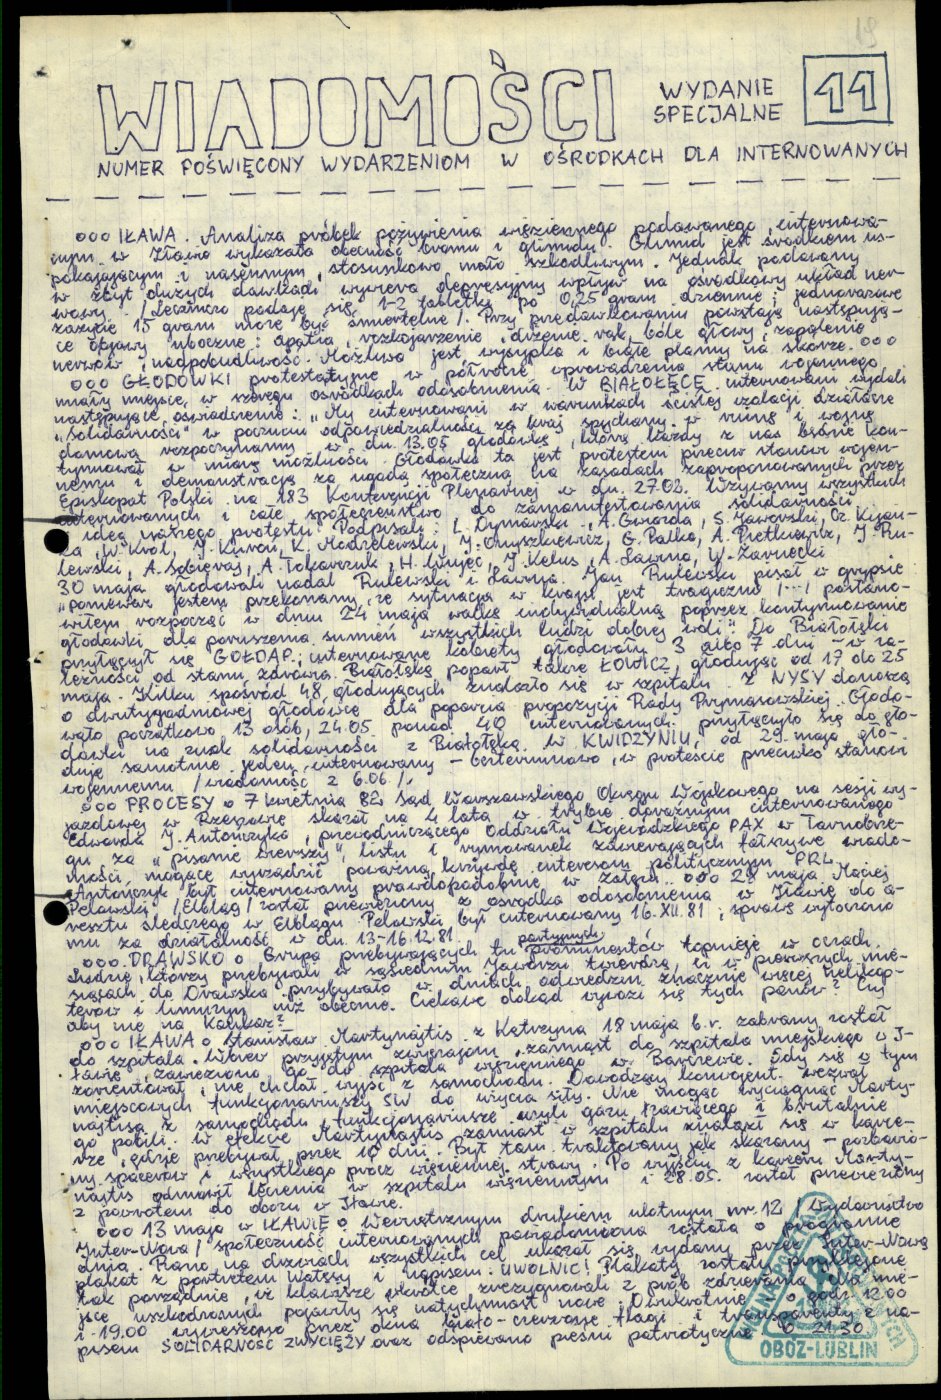 19
WIADOMOŚCI WYDANIE SPECJALNE 11
NUMER POŚWIĘCONY WYDARZENIOM W OŚRODKACH DLA INTERNOWANYCH
ooo IŁAWA. Analiza próbek pożywienia więziennego podawanego internowa-
nym w Iławie wykazała obecność bromu i glimidu. Glimid jest środkiem us-
pokajającym i nasennym, stosunkowo mało szkodliwym. Jednak podawany
w zbyt dużych dawkach wywiera depresyjny wpływ na ośrodkowy układ ner-
wowy. /Leczniczo podaje się 1-2 tabletki po 0,25 gram dziennie; jednorazowe
zażycie 15 gram może być śmiertelne/. Przy przedawkowaniu powstają następują-
ce objawy uboczne: apatia, rozkojarzenie, drżenie rąk, bóle głowy, zapalenie
nerwów, nadpobudliwość. Możliwa jest wysypka i białe plamy na skórze. ooo
ooo GŁODÓWKI protestacyjne w półrocze wprowadzenia stanu wojennego
miały miejsce w szeregu ośrodkach odosobnienia. W BIAŁOŁĘCE internowani wydali
następujące oświadczenie: "My internowani w warunkach ścisłej izolacji działacze
"Solidarności" w poczuciu odpowiedzialności za kraj spychany w ruinę i wojnę
domową rozpoczynamy w dn. 13.05 głodówkę, którą każdy z nas będzie kon-
tynuował w miarę możliwości. Głodówka ta jest protestem przeciw stanowi wojen-
nemu i demonstracją za ugodą społeczną na zasadach zaproponowanych przez
Episkopat Polski na 183 Konferencji Plenarnej w dn. 27.02. Wzywamy wszystkich
internowanych i całe społeczeństwo do zamanifestowania solidarności
z ideą naszego protestu. Podpisali: L. Dymarski, A. Gwiazda, S. Jaworski, Cz. Kijan-
ka, W. Król, J. Kuroń, K. Modzelewski, J. Onyszkiewicz, G. Palka, A. Pietkiewicz, J. Ru-
lewski, A. Sobieraj, A. Tokarczuk, H. Wujec, J. Kelus, A. Ławina, W. Zawnecki
30 maja głodowali nadal Rulewski i Ławina. Jan Rulewski pisał w grypsie
"ponieważ jestem przekonany, że sytuacja w kraju jest tragiczna /--/ postano-
wiłem rozpocząć w dniu 24 maja walkę indywidualną poprzez kontynuowanie
głodówki dla poruszenia sumień wszystkich ludzi dobrej woli". Do Białołęki
przyłączył się GOŁDAP; internowane kobiety głodowały 3 albo 7 dni – w za-
leżności od stanu zdrowia. Białołękę poparł także ŁOWICZ, głodując od 17 do 25
maja. Kilku spośród 48 głodujących znalazło się w szpitalu. Z NYSY donoszą
o dwutygodniowej głodówce dla poparcia propozycji Rady Prymasowskiej. Głodo-
wało początkowo 13 osób, 24.05. ponad 40 internowanych przyłączyło się do gło-
dówki na znak solidarności z Białołęką. W KWIDZYNIU, od 29 maja gło-
duje samotnie jeden internowany – bezterminowo, w proteście przeciwko stanowi
wojennemu /wiadomość z 6.06/.
ooo PROCESY o 7 kwietnia 82 Sąd Warszawskiego Okręgu Wojskowego na sesji wy-
jazdowej w Rzeszowie skazał na 4 lata w trybie doraźnym internowanego
Edwarda J. Antończyka, przewodniczącego Oddziału Wojewódzkiego PAX w Tarnobrze-
gu za "pisanie wierszy", listu i rymowanek zawierających fałszywe wiado-
mości mogące wyrządzić poważną krzywdę interesom politycznym PRL.
Antończyk był internowany prawdopodobnie w Załężu. ooo 28 maja Maciej
Pelowski /Elbląg/ został przewieziony z ośrodka odosobnienia w Iławie do a-
resztu śledczego w Elblągu. Pelowski był internowany 16.XII.81; sprawę wytoczono
mu za działalność w dn. 13-16.12.81.
ooo DRAWSKO o Grupa przebywających tu partyjnych prominentów topnieje w oczach.
Ludzie, którzy przebywali w sąsiednim Jaworzu twierdzą, iż w pierwszych mie-
siącach do Drawska przybywało w dniach odwiedzin znacznie więcej helikop-
terów i limuzyn niż obecnie. Ciekawe dokąd wywozi się tych panów? Czy
aby nie na Kaukaz?
ooo IŁAWA o Stanisław Martynajtis z Kętrzyna 18 maja b.r. zabrany został
do szpitala. Wbrew przyjętym zwyczajom, zamiast do szpitala miejskiego w I-
ławie, zawieziono go do szpitala więziennego w Barczewie. Gdy się w tym
zorientował, nie chciał wyjść z samochodu. Dowodzący konwojent wezwał
miejscowych funkcjonariuszy SW do użycia siły. Nie mogąc wyciągnąć Marty-
najtisa z samochodu, funkcjonariusze użyli gazu łzawiącego i brutalnie
go pobili. W efekcie Martynajtis zamiast w szpitalu znalazł się w karce-
rze, gdzie przebywał przez 10 dni. Był tam traktowany jak skazany – pozbawio-
ny spacerów i wszystkiego prócz więziennej strawy. Po wyjściu z karceru Marty-
najtis odmówił leczenia w szpitalu więziennym i 28.05. został przewieziony
z powrotem do obozu w Iławie.
ooo 13 maja w IŁAWIE o Wewnętrznym drukiem ulotnym nr. 12 /Wydawnictwo
Inter-Nowa/ społeczność internowanych powiadomiona została o programie
dnia. Rano na drzwiach wszystkich cel ukazał się wydany przez Inter-Nową
plakat z portretem Wałęsy i napisem: UWOLNIĆ! Plakaty zostały przyklejone
tak porządnie, iż klawisze wkrótce zrezygnowali z prób zdzierania. Na mie-
jsce uszkodzonych pojawiły się natychmiast nowe. Dwukrotnie o godz. 12.00
i 19.00 wywieszono przez okna biało-czerwone flagi i transparenty z na-
pisem SOLIDARNOŚĆ ZWYCIĘŻY oraz odśpiewano pieśni patriotyczne. O 21.30
OBOZ-LUBLIN